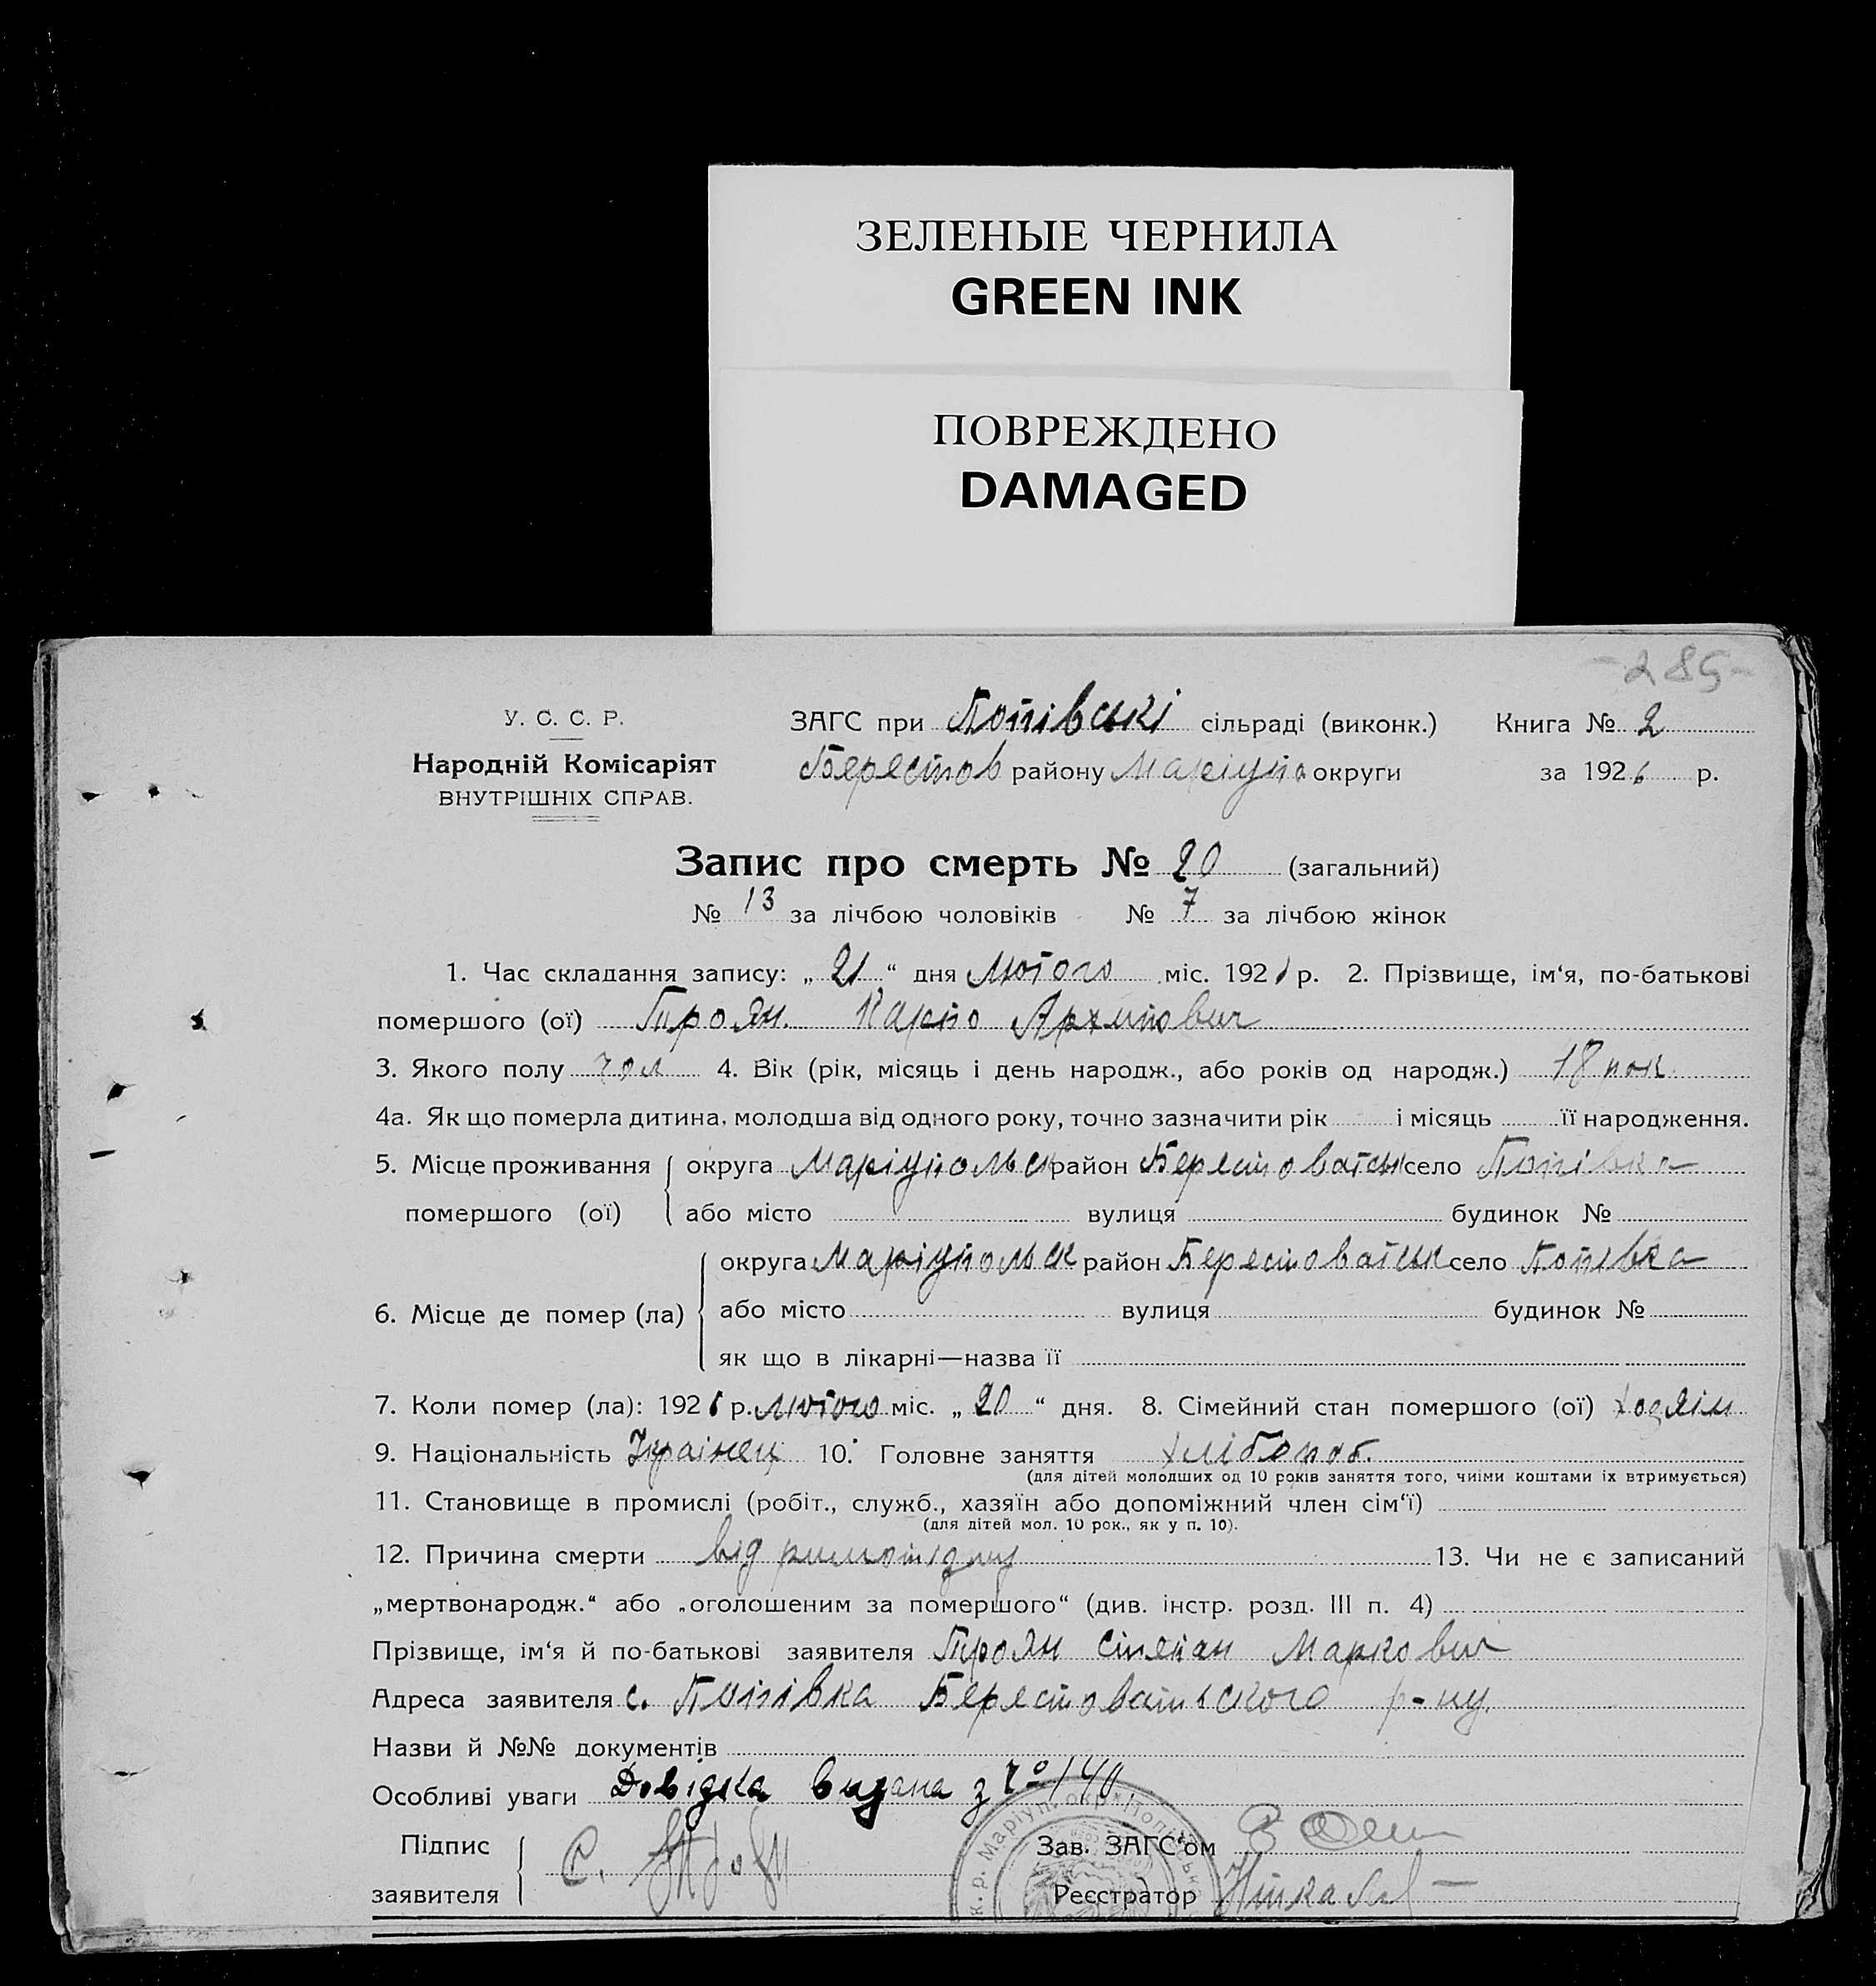 ЗЕЛЕНЫЕ ЧЕРНИЛА
GREEN INK
ПОВРЕЖДЕНО
DAMAGED
-285-
У. С. С. Р.
Народній Комісаріят
ВНУТРІШНІХ СПРАВ.
ЗАГС при Попівські сільраді (виконк.)
Берестов району Маріупо округи
Книга № 2
за 1926 р.
Запис про смерть № 20 (загальний)
№ 13 за лічбою чоловіків № 7 за лічбою жінок
1. Час складання запису: „21" дня Лютого міс. 192 р. 2. Прізвище, ім'я, по-батькові
помершого (ої) Троян Карпо Архипович
3. Якого полу чол 4. Вік (рік, місяць і день народж., або років од народж.) 18
4а. Як що померла дитина, молодша від одного року, точно зазначити рік і місяць її народження.
5. Місце проживання помершого (ої) округа Маріупольск район Берестоватськ село Попівка
або місто вулиця будинок №
6. Місце де помер (ла) округа Маріупольск район Берестоватськ село Попівка
або місто вулиця будинок №
як що в лікарні—назва її
7. Коли помер (ла): 192 р. Лютого міс. „20" дня. 8. Сімейний стан помершого (ої)
9. Національність Українец 10. Головне заняття хлібороб.
(для дітей молодших од 10 років заняття того, чиїми коштами їх втримується)
11. Становище в промислі (робіт., служб., хазяїн або допоміжний член сім'ї)
(для дітей мол. 10 рок., як у п. 10).
12. Причина смерти від 13. Чи не є записаний
„мертвонародж." або „оголошеним за помершого" (див. інстр. розд. III п. 4)
Прізвище, ім'я й по-батькові заявителя Троян Степан Маркович
Адреса заявителя с. Попівка Берестоватського р-ну.
Назви й №№ документів
Особливі уваги Довідка видана з № 140
Підпис заявителя С. Троян
Зав. ЗАГС'ом
Реєстратор